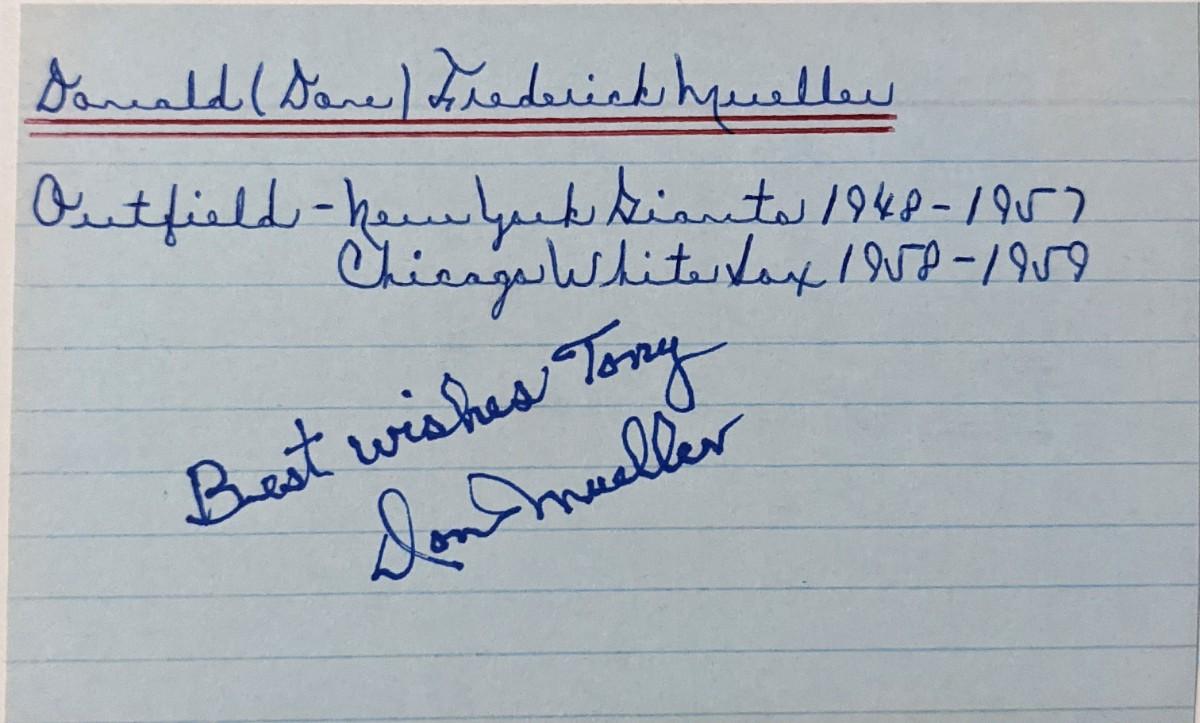 Donald (Don) Frederick Mueller
Outfield - New York Giants 1948-1957
Chicago White Sox 1958-1959
Best wishes Tony
Don Mueller